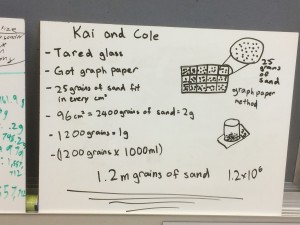 Kai and Cole
- Tared glass
- Got graph paper
- 25 grains of sand fit
in every cm²
- 96cm² = 2400 grains of sand = 2g
- 1200 grains = 1g
- (1200 grains x 1000ml)
1.2m grains of sand
1.2×10⁶
25
grains
of
sand
graph paper
method